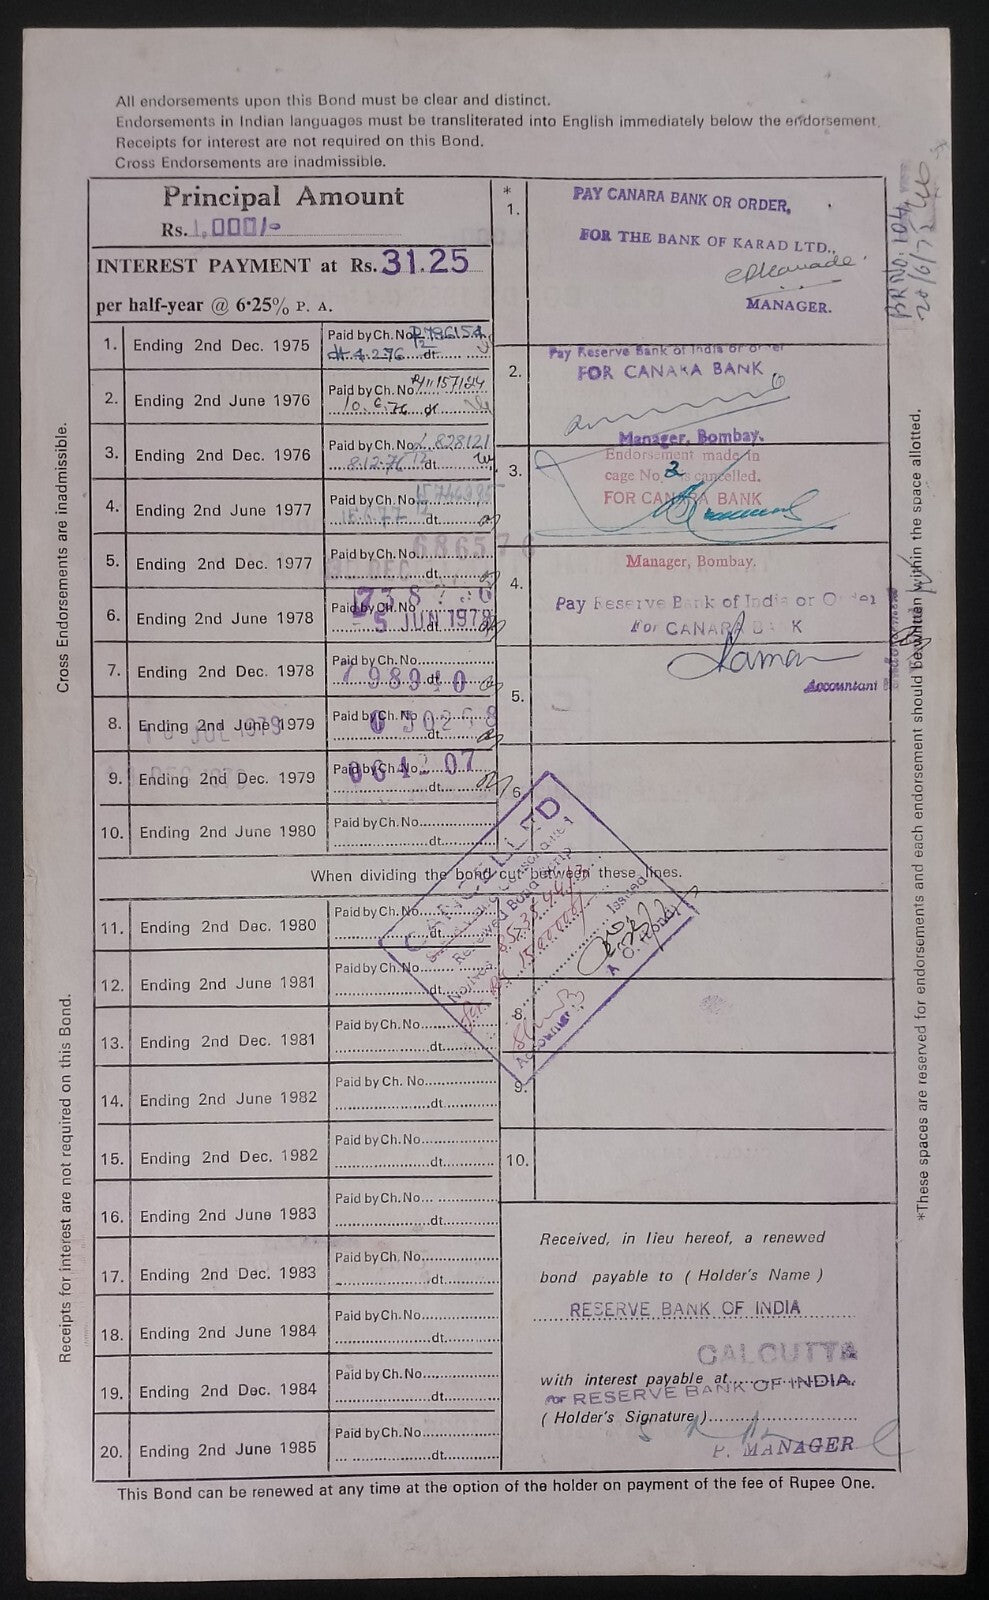 All endorsements upon this Bond must be clear and distinct.
Endorsements in Indian languages must be transliterated into English immediately below the endorsement.
Receipts for interest are not required on this Bond.
Cross Endorsements are inadmissible.
Principal Amount
Rs. 1,000/-
INTEREST PAYMENT at Rs. 31.25
per half-year @ 6·25% P. A.
1. Ending 2nd Dec. 1975 Paid by Ch. No.
dt. 4.2.76 dt.
2. Ending 2nd June 1976 Paid by Ch. No.
10.6.76 dt
3. Ending 2nd Dec. 1976 Paid by Ch. No. 828121
8.12.76 dt.
4. Ending 2nd June 1977 Paid by Ch. No.
dt.
5. Ending 2nd Dec. 1977 Paid by Ch. No. 686576
DEC dt.
6. Ending 2nd June 1978 Paid by Ch. No.
5 JUN 1978 dt.
7. Ending 2nd Dec. 1978 Paid by Ch. No.
798940 dt.
8. Ending 2nd June 1979 Paid by Ch. No
JUL 1979 dt.
9. Ending 2nd Dec. 1979 Paid by Ch. No.
dt.
10. Ending 2nd June 1980 Paid by Ch. No.
dt.
When dividing the bond cut between these lines.
11. Ending 2nd Dec. 1980 Paid by Ch. No.
dt.
12. Ending 2nd June 1981 Paid by Ch. No.
dt.
13. Ending 2nd Dec. 1981 Paid by Ch. No.
dt.
14. Ending 2nd June 1982 Paid by Ch. No.
dt.
15. Ending 2nd Dec. 1982 Paid by Ch. No.
dt.
16. Ending 2nd June 1983 Paid by Ch. No.
dt.
17. Ending 2nd Dec. 1983 Paid by Ch. No.
dt.
18. Ending 2nd June 1984 Paid by Ch. No.
dt.
19. Ending 2nd Dec. 1984 Paid by Ch. No.
dt.
20. Ending 2nd June 1985 Paid by Ch. No.
dt.
*
1.
PAY CANARA BANK OR ORDER,
FOR THE BANK OF KARAD LTD.,
MANAGER.
2.
Pay Reserve Bank of India or order
FOR CANARA BANK
Manager, Bombay.
3.
Endorsement made in
cage No. 2 is cancelled.
FOR CANARA BANK
Manager, Bombay.
4.
Pay Reserve Bank of India or Order
For CANARA BANK
Accountant
5.
6.
CANCELLED
Renewed Bond
Issued
Accountant
8.
9.
10.
Received, in lieu hereof, a renewed
bond payable to ( Holder's Name )
RESERVE BANK OF INDIA
CALCUTTA
with interest payable at
for RESERVE BANK OF INDIA.
( Holder's Signature )
P. MANAGER
This Bond can be renewed at any time at the option of the holder on payment of the fee of Rupee One.
Cross Endorsements are inadmissible.
Receipts for interest are not required on this Bond.
*These spaces are reserved for endorsements and each endorsement should be written within the space allotted.